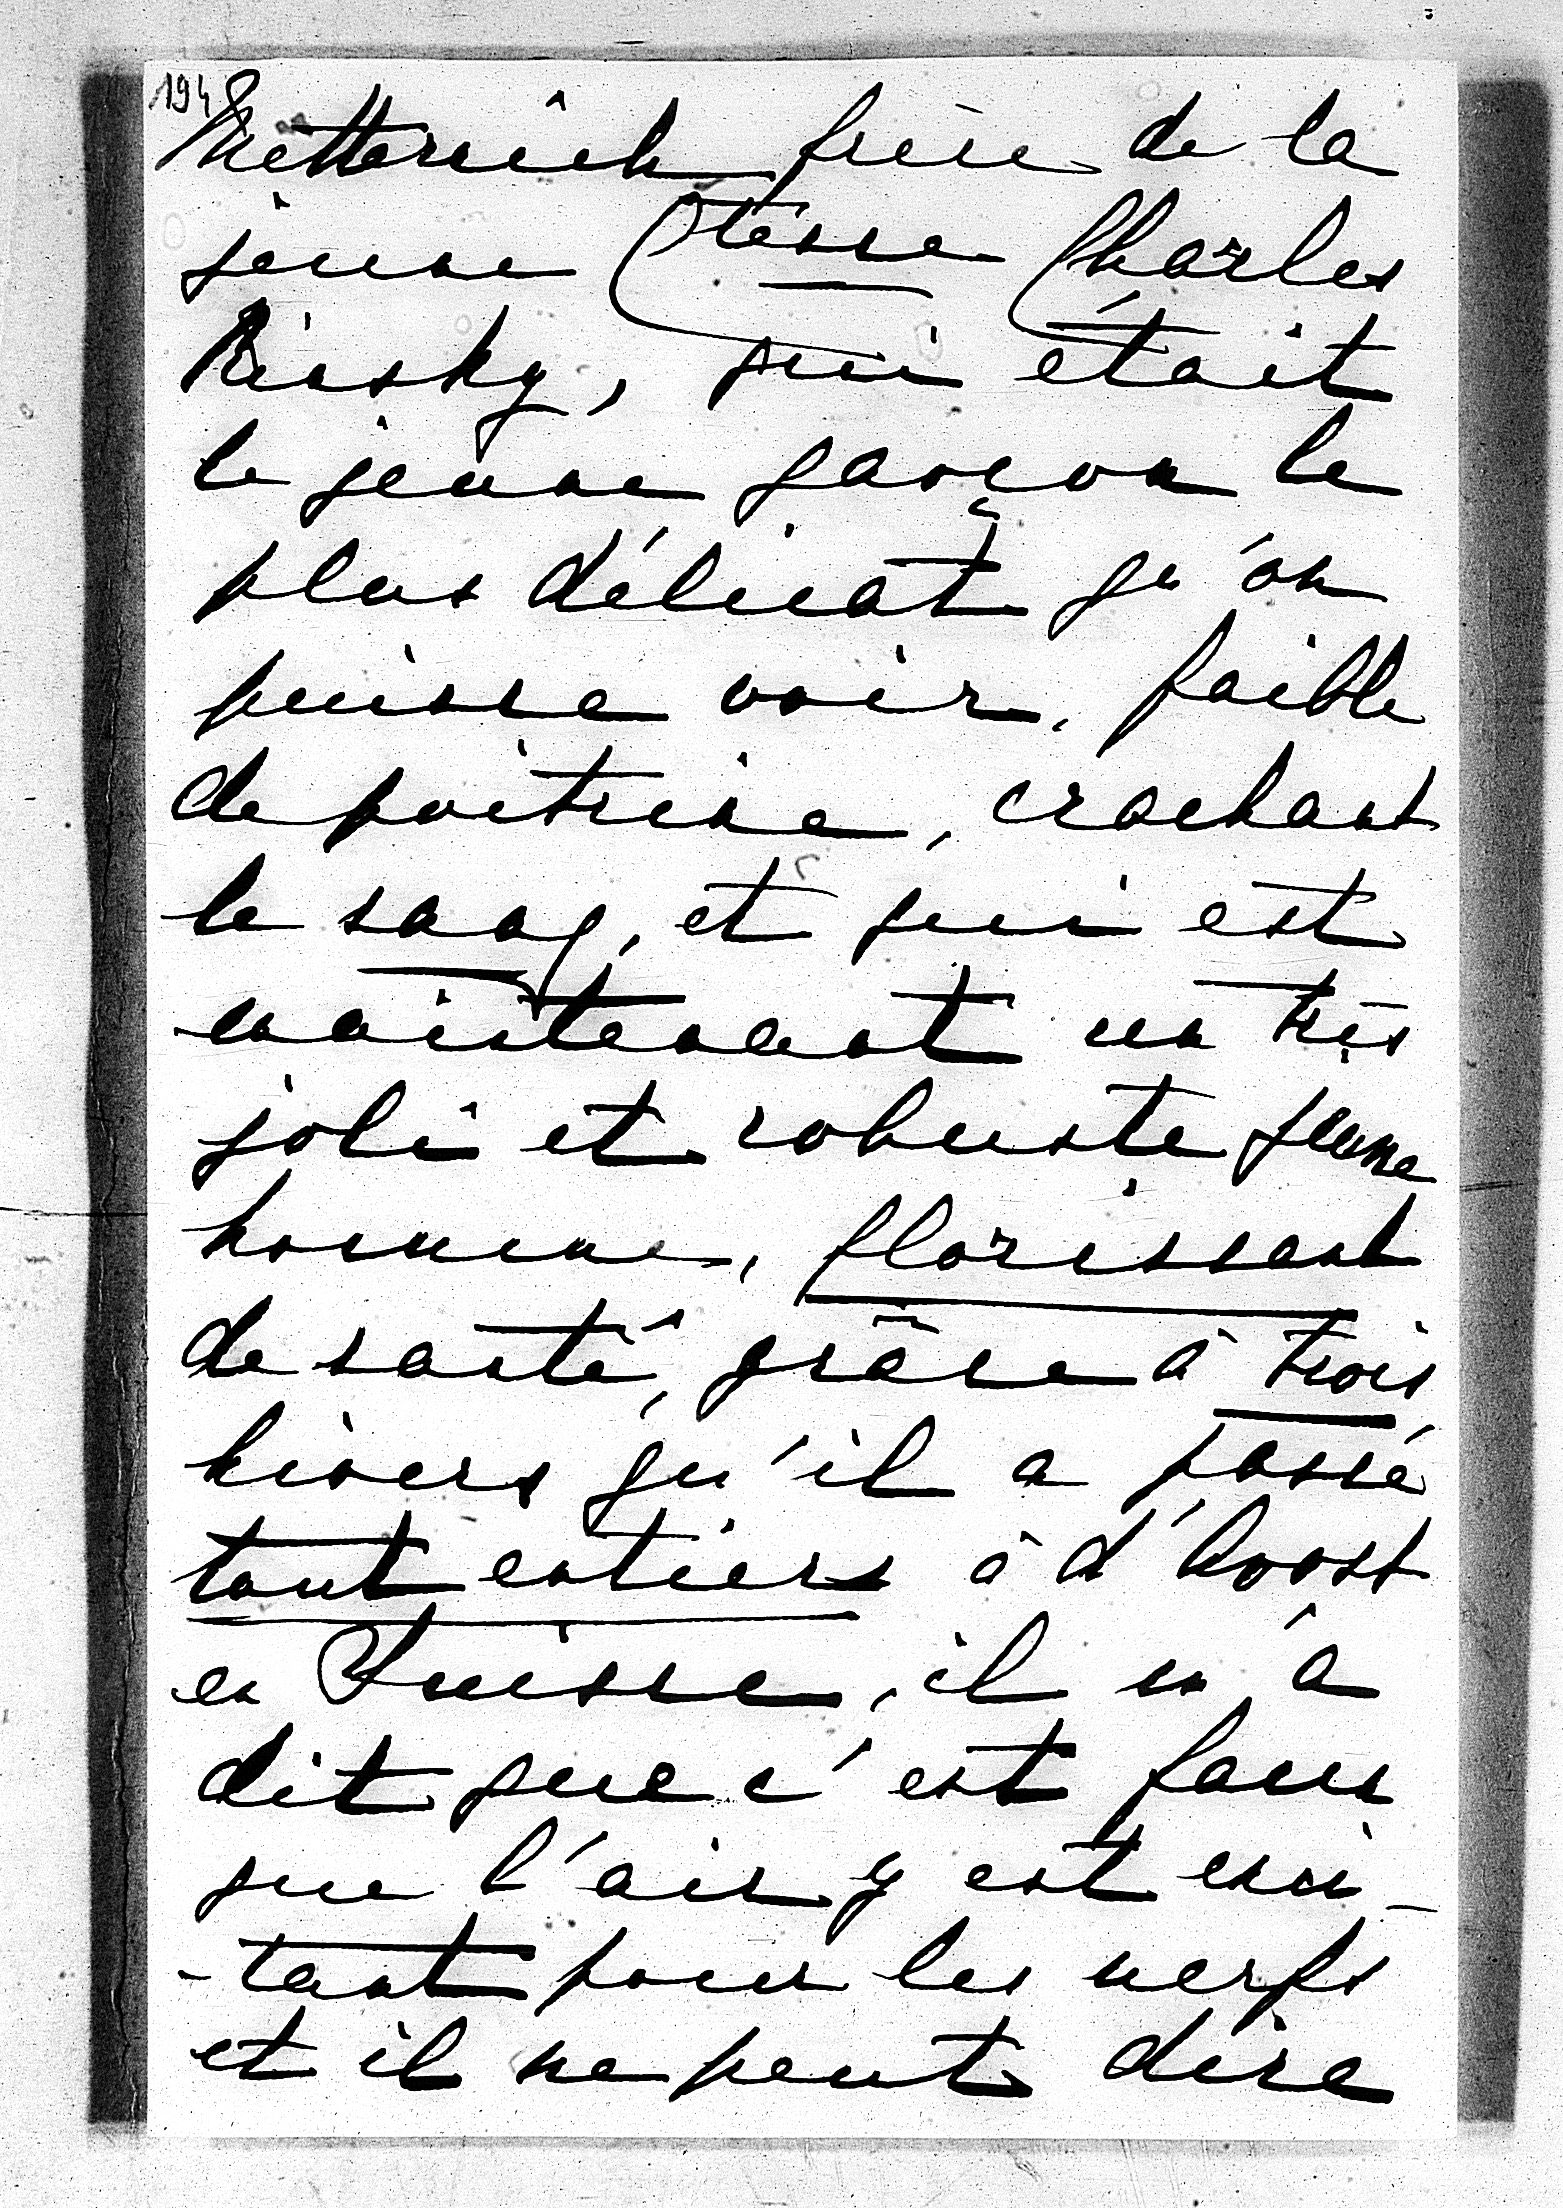 194
Metternich frère de la
jeune Ctesse Charles
Kinsky, qui était
le jeune garçon le
plus délicat qu'on
puisse voir, faible
de poitrine, crachant
le sang, et qui est
maintenant un très
joli et robuste jeune
homme, florissant
de santé, grâce à trois
hivers qu'il a passé
tout entiers à d'Avost
en Suisse, il m'a
dit que c'est faux
que l'air y est exci-
-tant pour les nerfs
et il ne peut dire